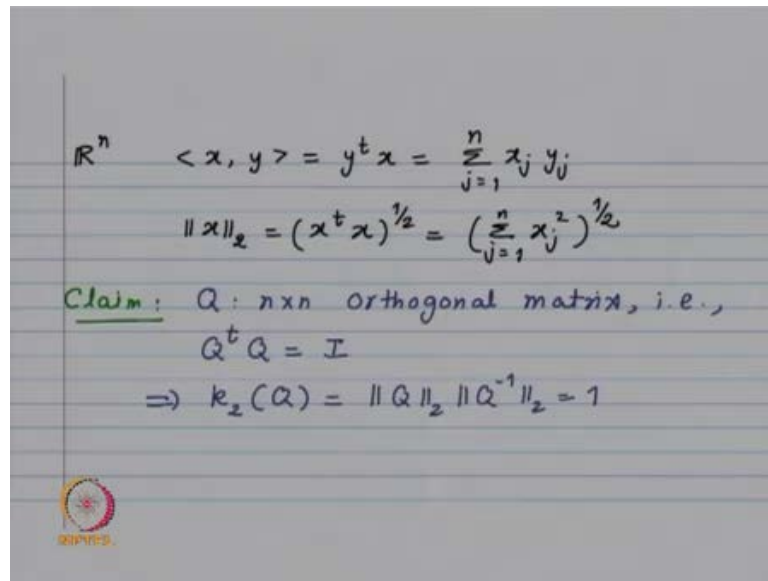 ℝⁿ <x, y> = yᵗx = Σⱼ₌₁ⁿ xⱼ yⱼ
‖x‖₂ = (xᵗx)^{1/2} = (Σⱼ₌₁ⁿ xⱼ²)^{1/2}
Claim: Q: n×n orthogonal matrix, i.e.,
QᵗQ = I
⇒ k₂(Q) = ‖Q‖₂ ‖Q⁻¹‖₂ = 1